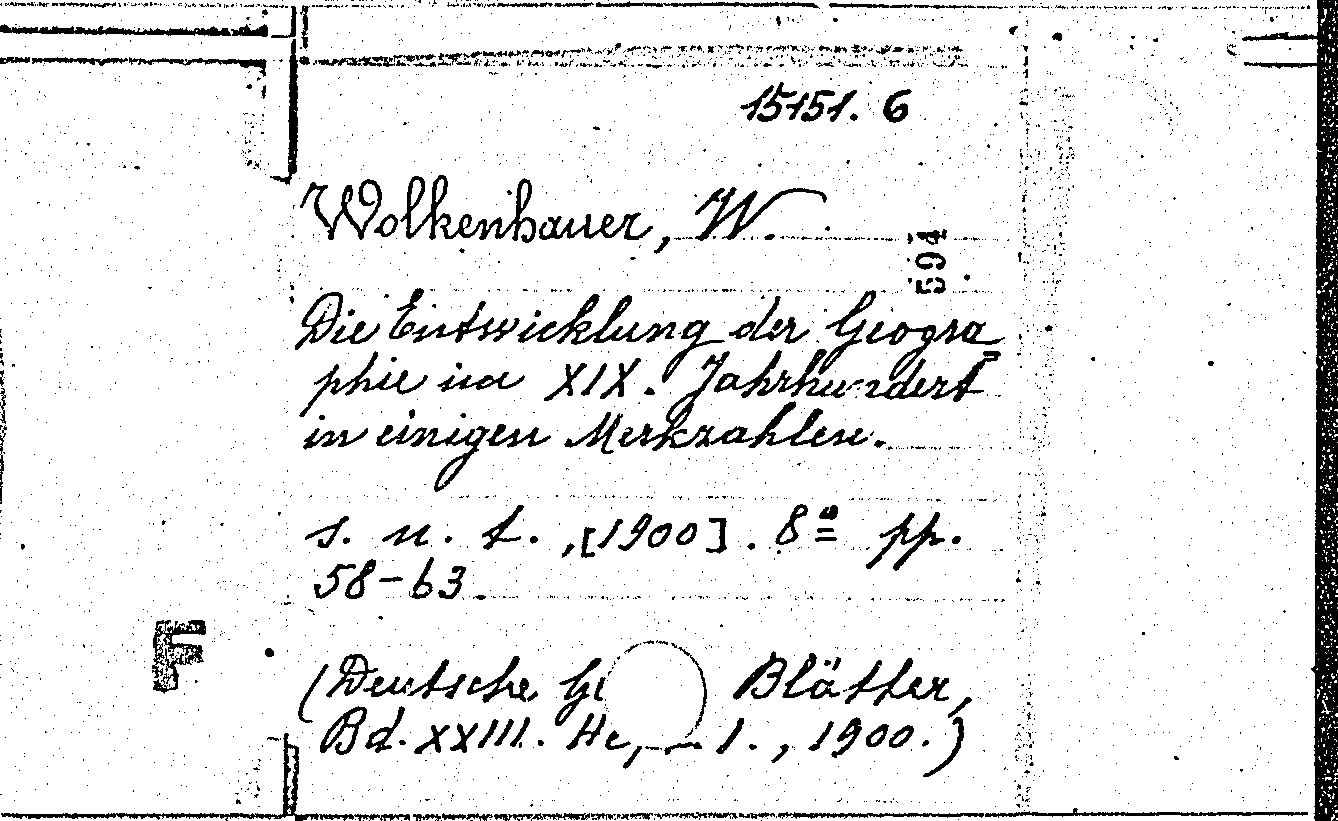 15151. 6
Wolkenhauer, W.
594
Die Entwicklung der Geogra
phie im XIX. Jahrhundert
in einigen Merkzahlen.
s. n. t., [1900]. 8º pp.
58-63.
F
(Deutsche Blätter,
Bd. XXIII. 1., 1900.)